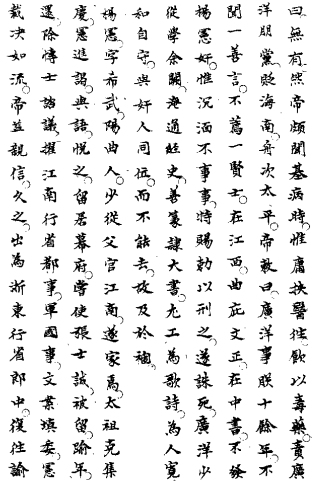 曰無有然帝頗聞基病時惟庸挾醫往飲以毒藥責廣
洋朋黨貶海南舟次太平帝敕曰廣洋事朕十餘年不
聞一善言不薦一賢士在江西曲庇文正在中書不發
楊憲奸惟沉湎不事事特賜勅以刑之遂誅死廣洋少
從學余闕淹通經史善篆隸大書尤工為歌詩為人寬
和自守與奸人同位而不能去故及於禍
楊憲字希武陽曲人少從父官江南遂家焉太祖克集
慶憲進謁與語悅之留居幕府嘗使張士誠被留踰年
還除博士諮議擢江南行省都事軍國事文案填委憲
裁决如流帝並親信久之出為浙東行省郎中復往諭